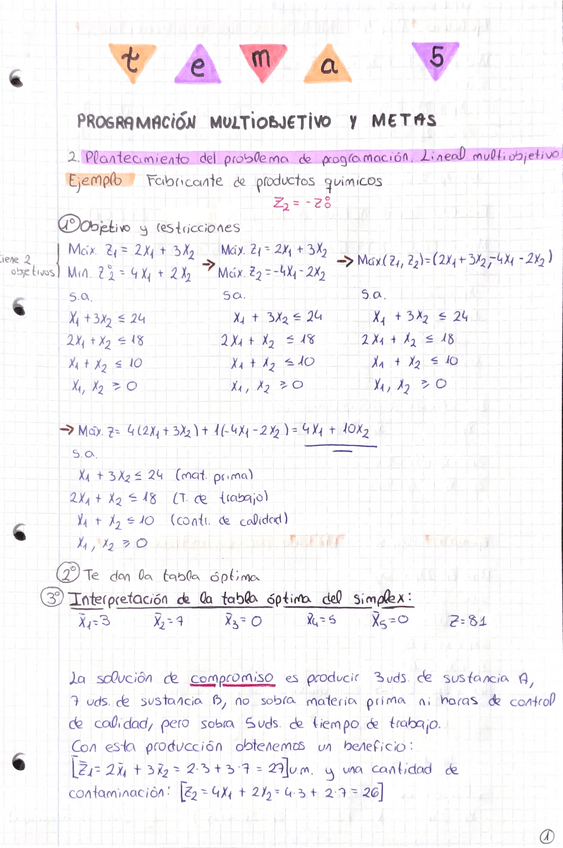 tema 5
PROGRAMACIÓN MULTIOBJETIVO Y METAS
2. Planteamiento del problema de programación. Lineal multiobjetivo
Ejemplo Fabricante de productos químicos
Z₂ = -Z₂⁰
1º Objetivo y restricciones
tiene 2 objetivos
Máx. Z₁ = 2X₁ + 3X₂ → Máx. Z₁ = 2X₁ + 3X₂ → Máx(Z₁, Z₂) = (2X₁ + 3X₂, -4X₁ - 2X₂)
Mín. Z₂⁰ = 4X₁ + 2X₂ Máx. Z₂ = -4X₁ - 2X₂
s.a. s.a. s.a.
X₁ + 3X₂ ≤ 24 X₁ + 3X₂ ≤ 24 X₁ + 3X₂ ≤ 24
2X₁ + X₂ ≤ 18 2X₁ + X₂ ≤ 18 2X₁ + X₂ ≤ 18
X₁ + X₂ ≤ 10 X₁ + X₂ ≤ 10 X₁ + X₂ ≤ 10
X₁, X₂ ≥ 0 X₁, X₂ ≥ 0 X₁, X₂ ≥ 0
→ Máx. Z = 4(2X₁ + 3X₂) + 1(-4X₁ - 2X₂) = 4X₁ + 10X₂
s.a.
X₁ + 3X₂ ≤ 24 (mat. prima)
2X₁ + X₂ ≤ 18 (T. de trabajo)
X₁ + X₂ ≤ 10 (contr. de calidad)
X₁, X₂ ≥ 0
2º Te dan la tabla óptima
3º Interpretación de la tabla óptima del simplex:
X̄₁=3 X̄₂=7 X̄₃=0 X̄₄=5 X̄₅=0 Z=81
La solución de compromiso es producir 3 uds. de sustancia A,
7 uds. de sustancia B, no sobra materia prima ni horas de control
de calidad, pero sobra 5 uds. de tiempo de trabajo.
Con esta producción obtenemos un beneficio:
[Z̄₁ = 2X̄₁ + 3X̄₂ = 2·3 + 3·7 = 27] u.m. y una cantidad de
contaminación: [Z₂ = 4X₁ + 2X₂ = 4·3 + 2·7 = 26]
1